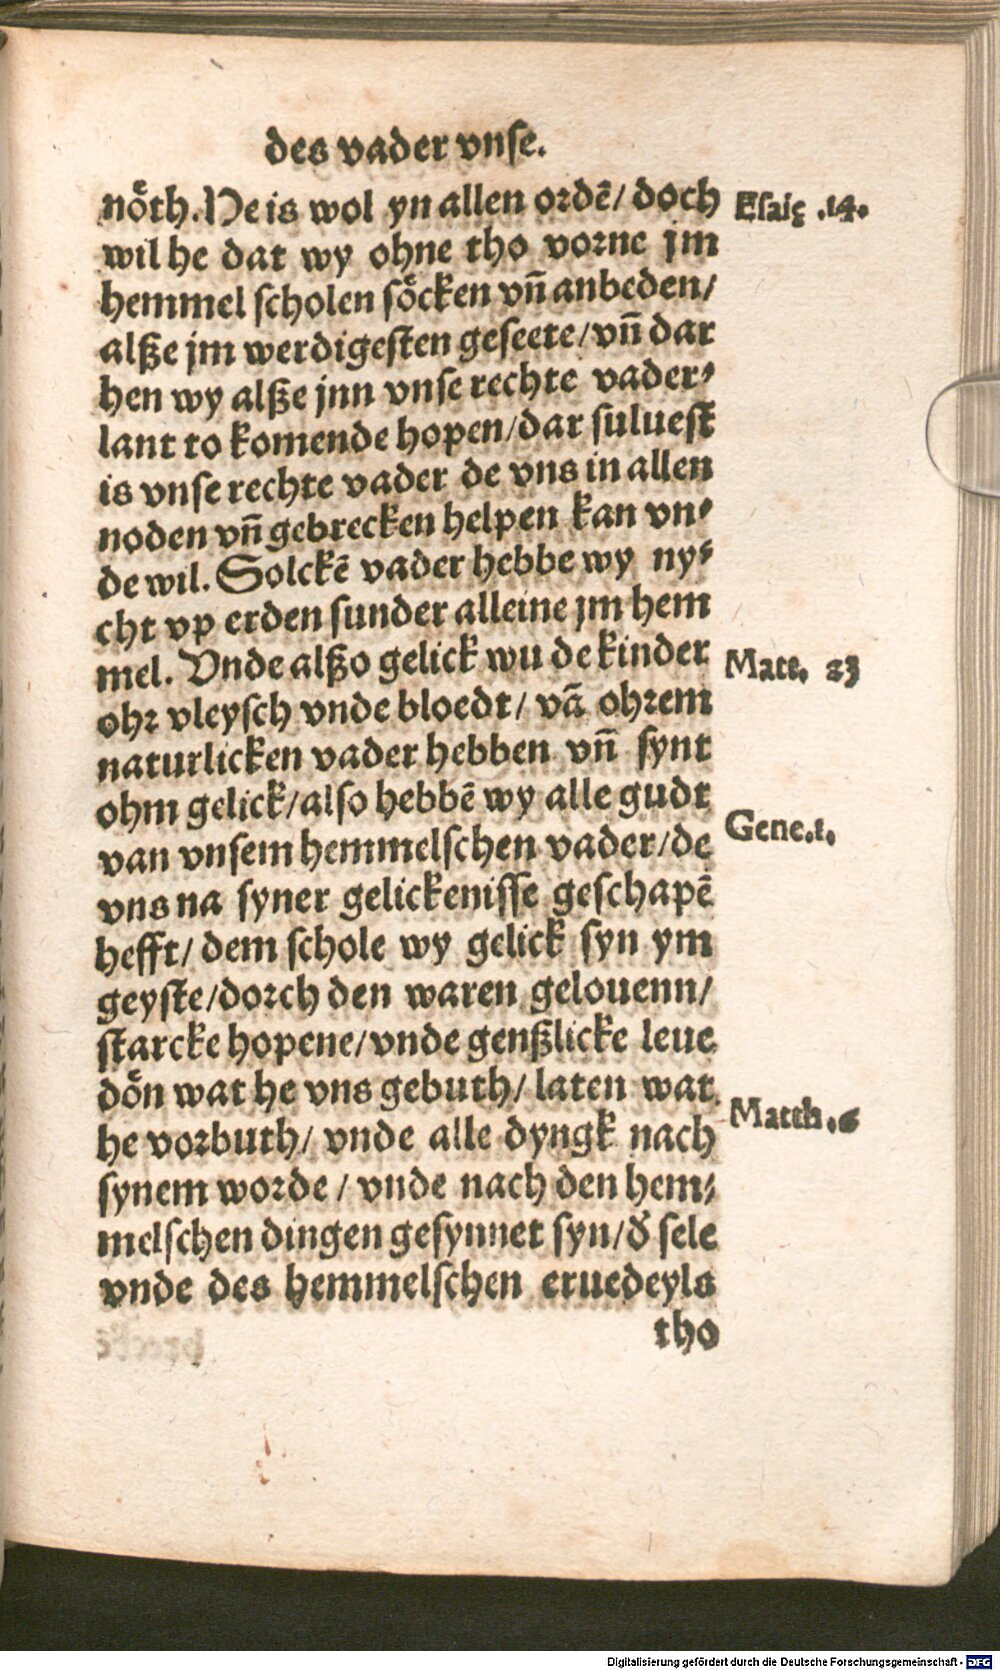 des vader vnse.
nöth. He is wol yn allen ordē/ doch
Esaię .14.
wil he dat wy ohne tho vorne jm
hemmel scholen söcken vn̄ anbeden/
alße jm werdigesten geseete/ vn̄ dar
hen wy alße jnn vnse rechte vader⸗
lant to komende hopen/ dar suluest
is vnse rechte vader de vns in allen
noden vn̄ gebrecken helpen kan vn⸗
de wil. Solckē vader hebbe wy ny⸗
cht vp erden sunder alleine jm hem
mel. Vnde alßo gelick wu de kinder
Matt. 23
ohr vleysch vnde bloedt/ vā ohrem
naturlicken vader hebben vn̄ synt
ohm gelick/ also hebbē wy alle gudt
van vnsem hemmelschen vader/ de
Gene.1.
vns na syner gelickenisse geschapē
hefft/ dem schole wy gelick syn ym
geyste/ dorch den waren gelouenn/
starcke hopene/ vnde genßlicke leue
dön wat he vns gebuth/ laten wat
he vorbuth/ vnde alle dyngk nach
Matth.6
synem worde / vnde nach den hem⸗
melschen dingen gesynnet syn/ d̄ sele
vnde des hemmelschen eruedeyls
tho
Digitalisierung gefördert durch die Deutsche Forschungsgemeinschaft - DFG